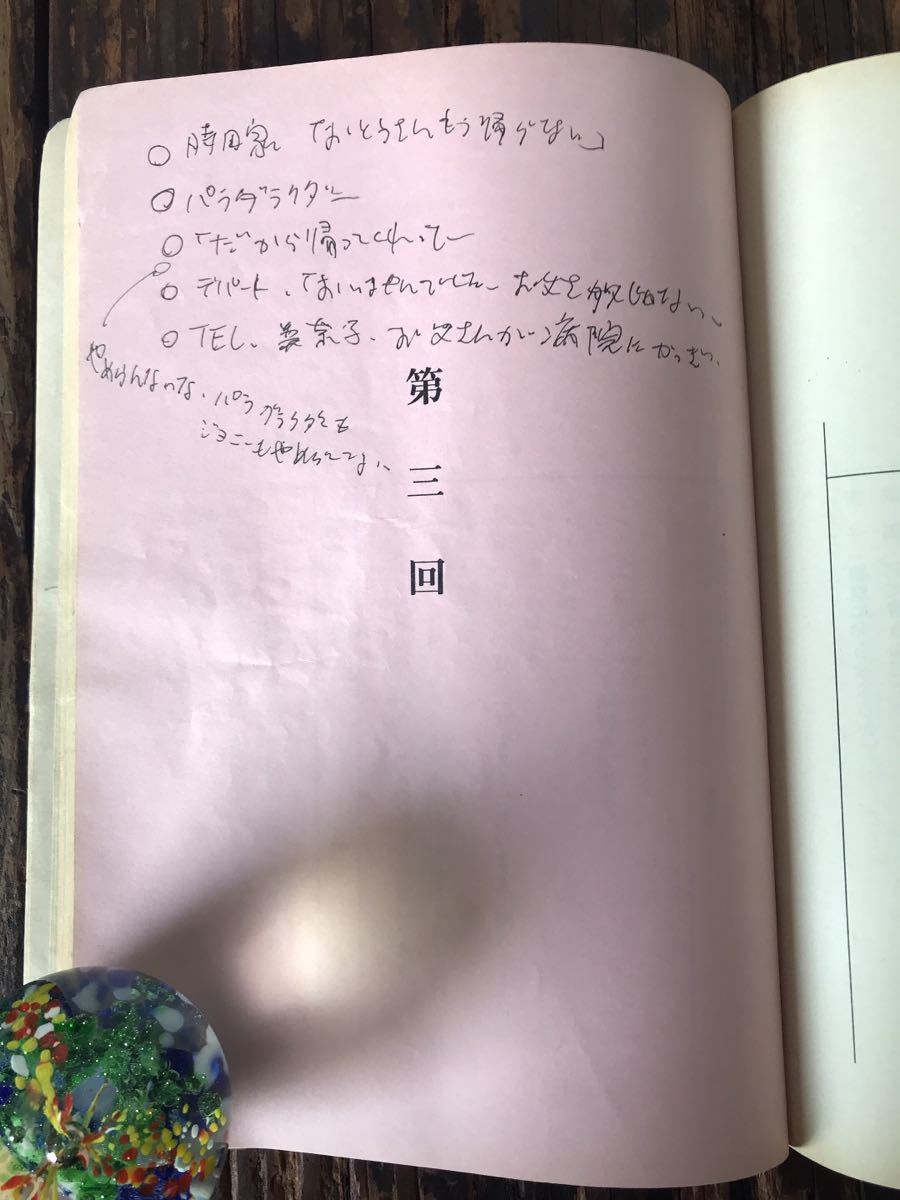 ○時田家 「おとうさんもう帰らない」
○パラダラクダー
○「だから帰ってくれって
○デパート、「おいませんでした お父を
○TEL、美奈子、お父さんが病院にかつぎ
やめらんないな、パラ
ジョニーもやめらんない
第三回